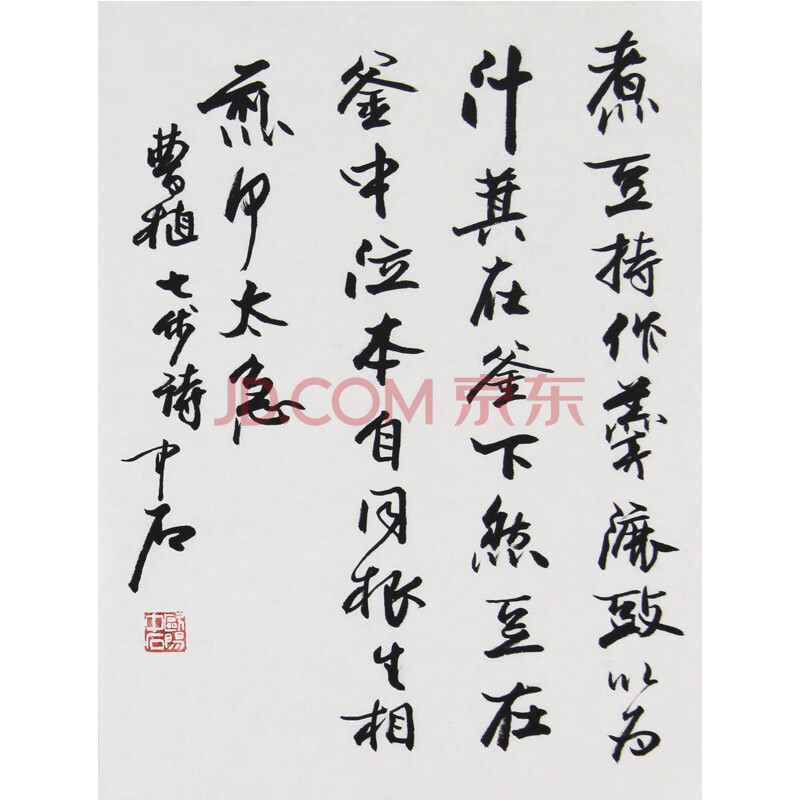 煮豆持作羹漉豉以为
汁萁在釜下然豆在
釜中泣本自同根生相
煎何太急
曹植七步诗中石
歐陽中石
JD.COM 京东